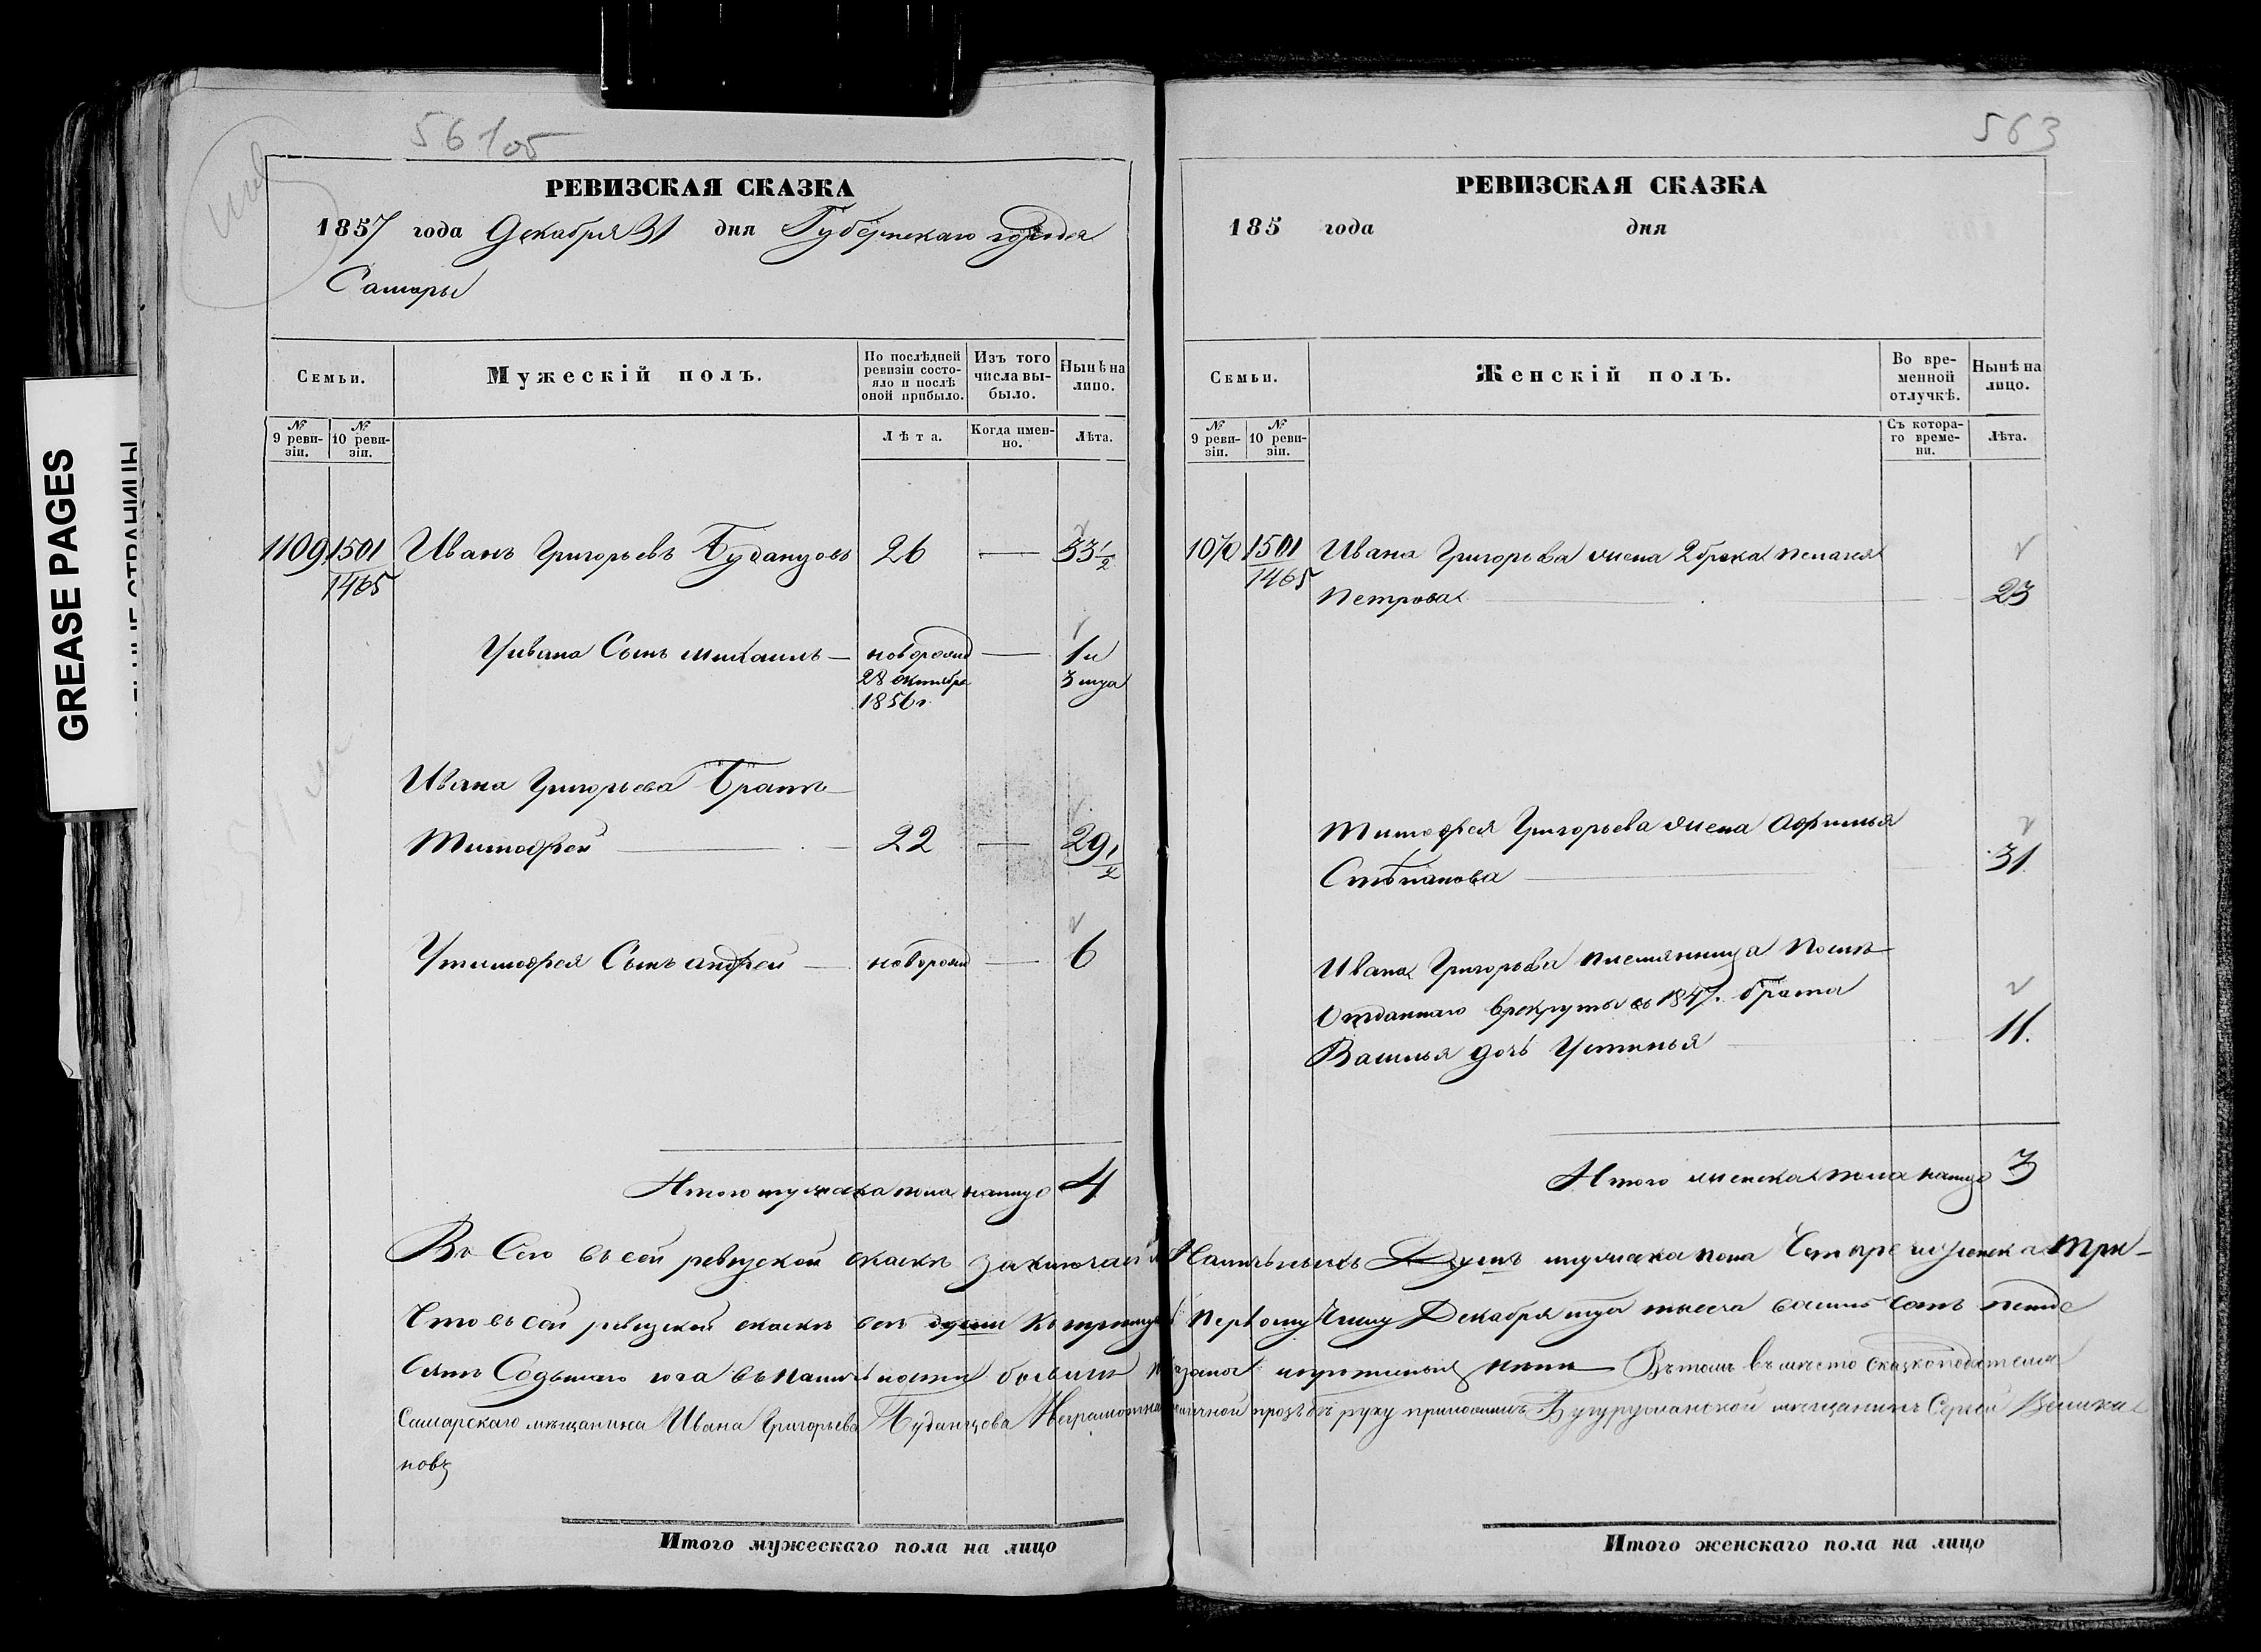 GREASE PAGES
561об
РЕВИЗСКАЯ СКАЗКА
1857 года Декабря 31 дня Губернскаго города
Самары
Семьи.
Мужескій полъ.
По послѣдней ревизіи состояло и послѣ оной прибыло.
Изъ того числа выбыло.
Нынѣ на лицо.
№ 9 ревизіи.
№ 10 ревизіи.
Лѣта.
Когда именно.
Лѣта.
1109 1501 Иванъ Григорьевъ Буданцовъ 26 — 33 1/2
1465
У Ивана Сынъ Михаилъ — новорожд — 1 и
28 октября 3 мца
1856 г
Ивана Григорьева Братъ
Тимофей — 22 — 29 1/2
У Тимофея Сынъ Андрей — новорожд — 6
Итого мужска пола налицо 4
563
РЕВИЗСКАЯ СКАЗКА
185 года дня
Семьи.
Женскій полъ.
Во временной отлучкѣ.
Нынѣ на лицо.
№ 9 ревизіи.
№ 10 ревизіи.
Съ котораго времени.
Лѣта.
1501 Ивана Григорьева жена 2 брака Пелагея
1465 Петрова 23
Тимофея Григорьева жена Афимья
Стѣпанова 31
Ивана Григорьева племянница послѣ
Отданнаго в рекруты въ 1847. брата
Василья дочь Устинья 11.
Итого женска пола налицо 3
Въ сей ревизской сказкѣ заключается Наличныхъ Душъ мужска пола Четыре и женска три —
Что въ сей ревизской сказкѣ всѣ души къ тритцать первому Числу Декабря мца тысеча восимь сотъ петде
сятъ Седьмаго года въ наличности бывшия показаны и пропущеных нѣтъ Въ томъ вместо сказкоподателя
Самарскаго мѣщанина Ивана Григорьева Буданцова Неграмотна личной прозьбѣ руку приложилъ Бугурусланской мещанинъ Сергей Великановъ
Итого мужескаго пола на лицо
Итого женскаго пола на лицо